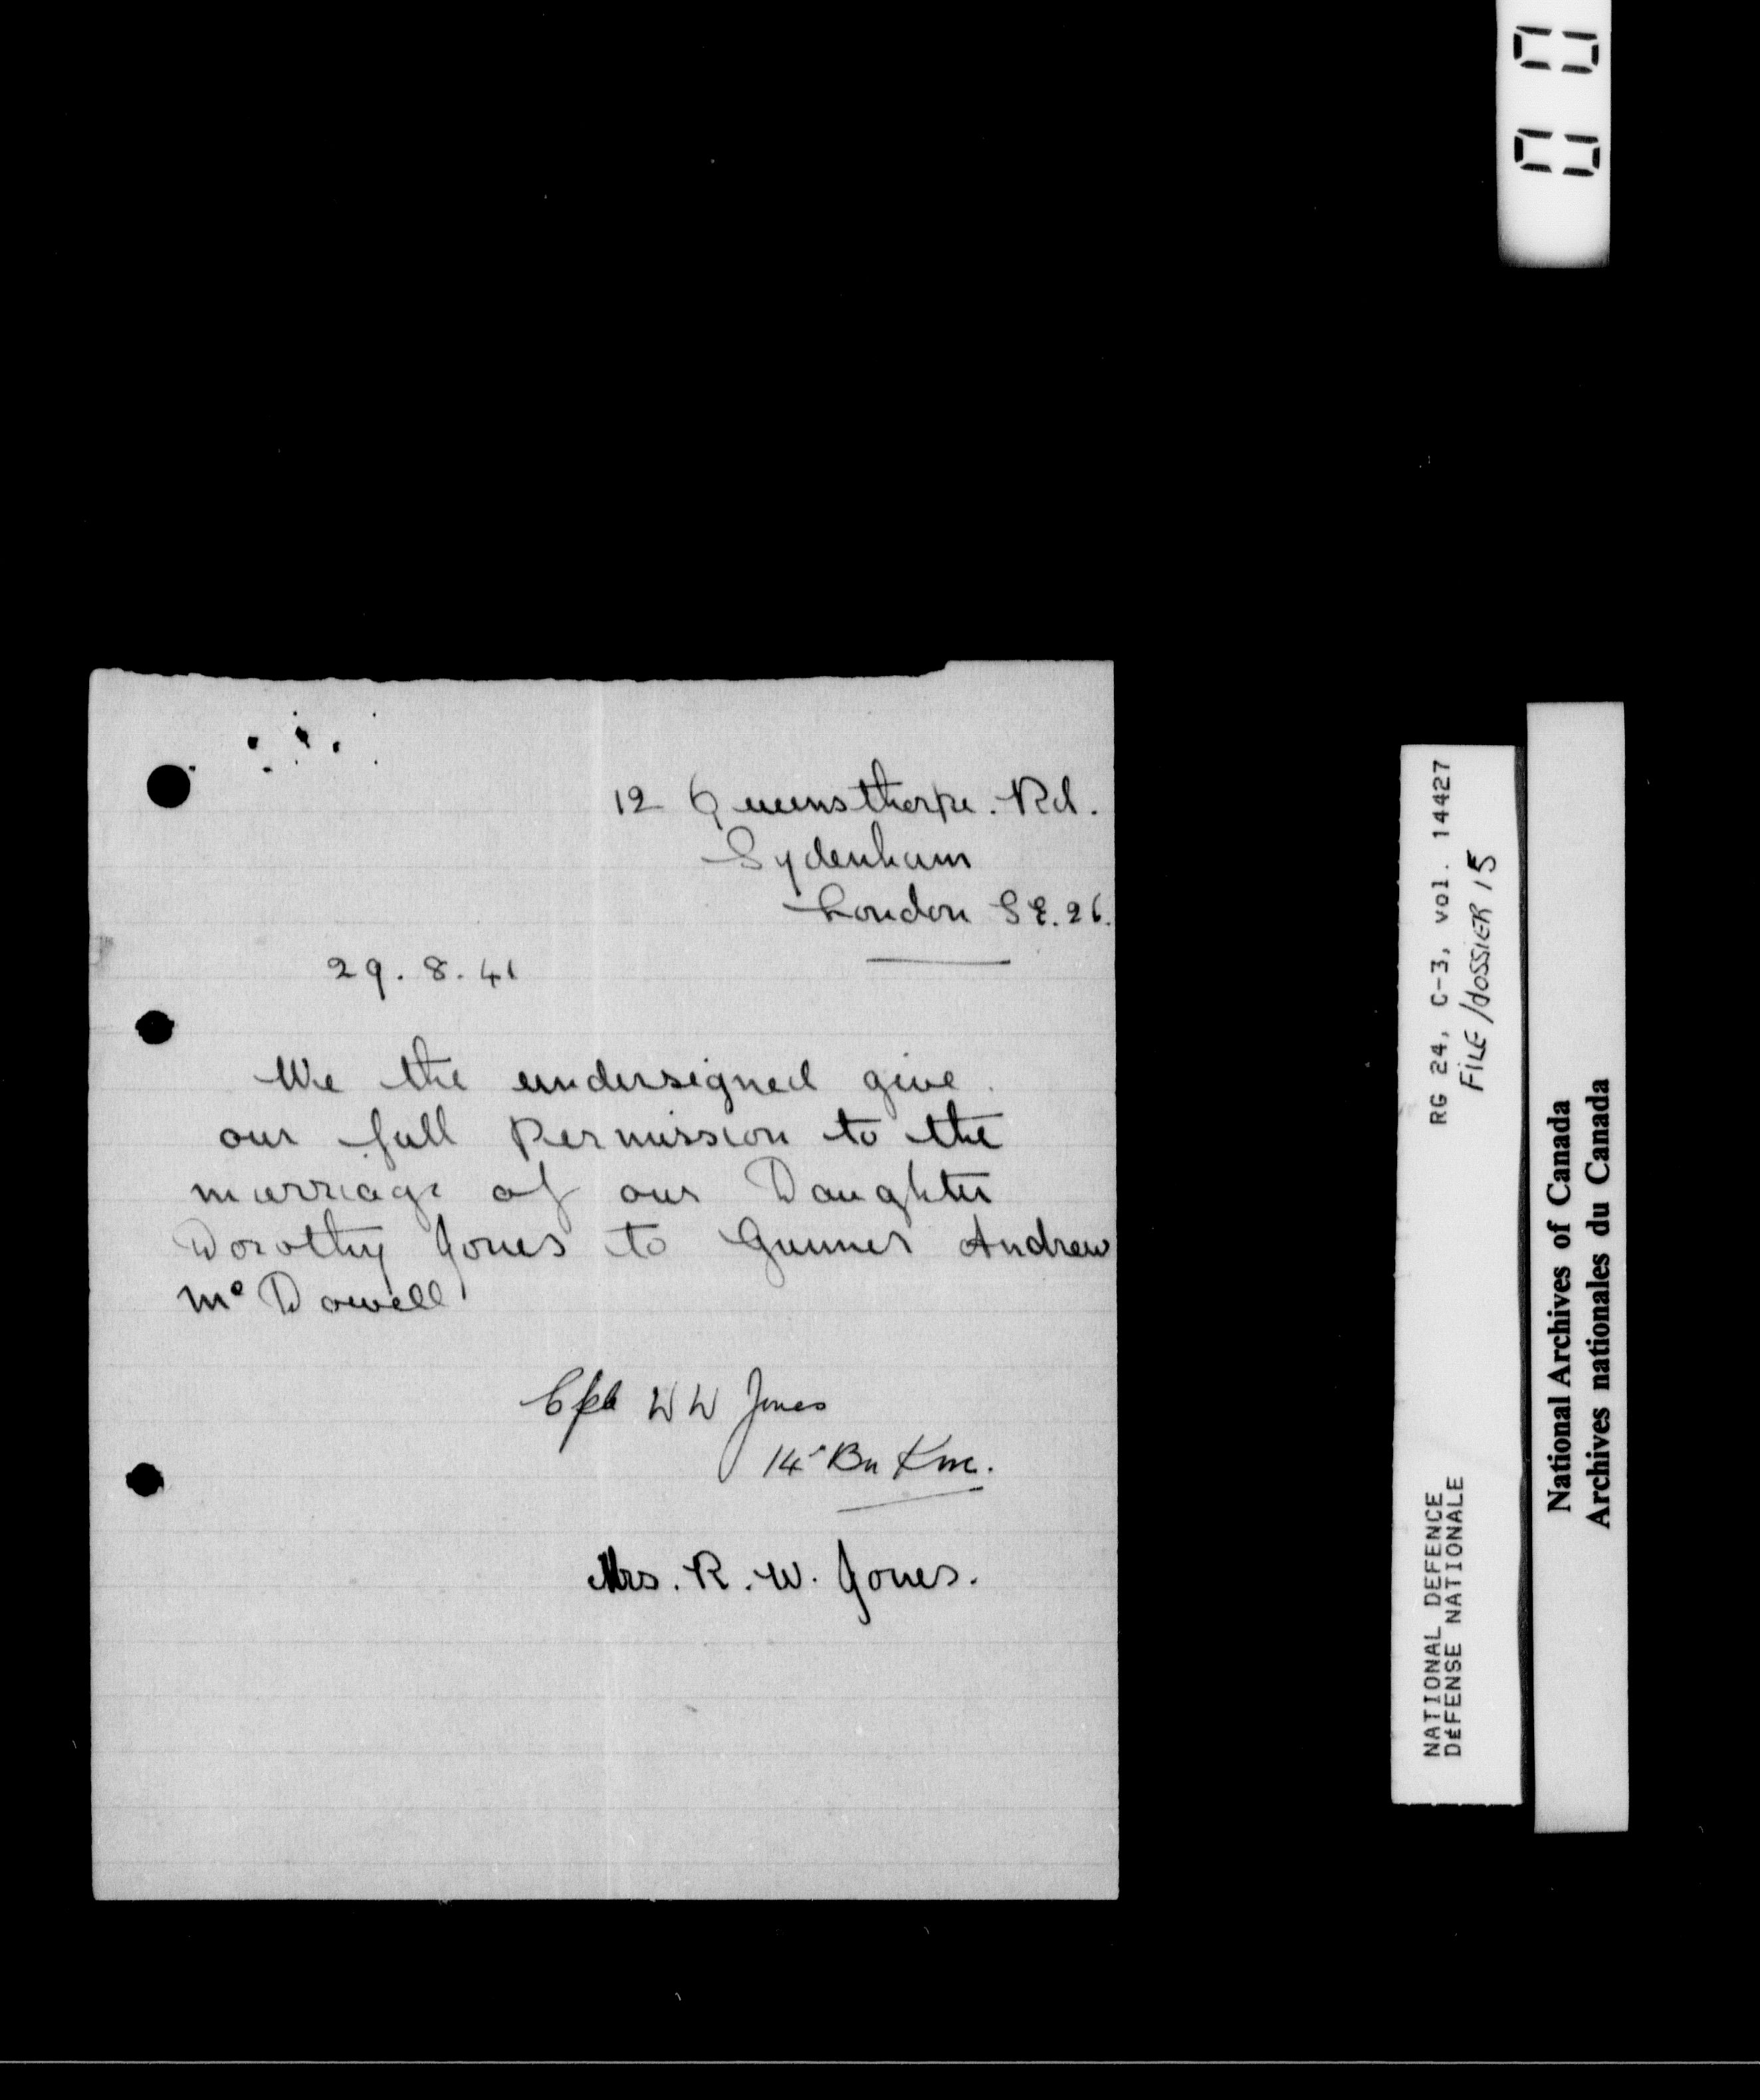 12 Queensthorpe. Rd.
Sydenham
London S.E. 26.
29. 8. 41
We the undersigned give
our full Permission to the
marriage of our Daughter
Dorothy Jones to Gunner Andrew
Mc Dowell
Cpl W W Jones
14 Bn
Mrs. R. W. Jones.
00
RG 24, C-3, vol. 14427
FILE/dOSSIER 15
NATIONAL DEFENCE
DÉFENSE NATIONALE
National Archives of Canada
Archives nationales du Canada